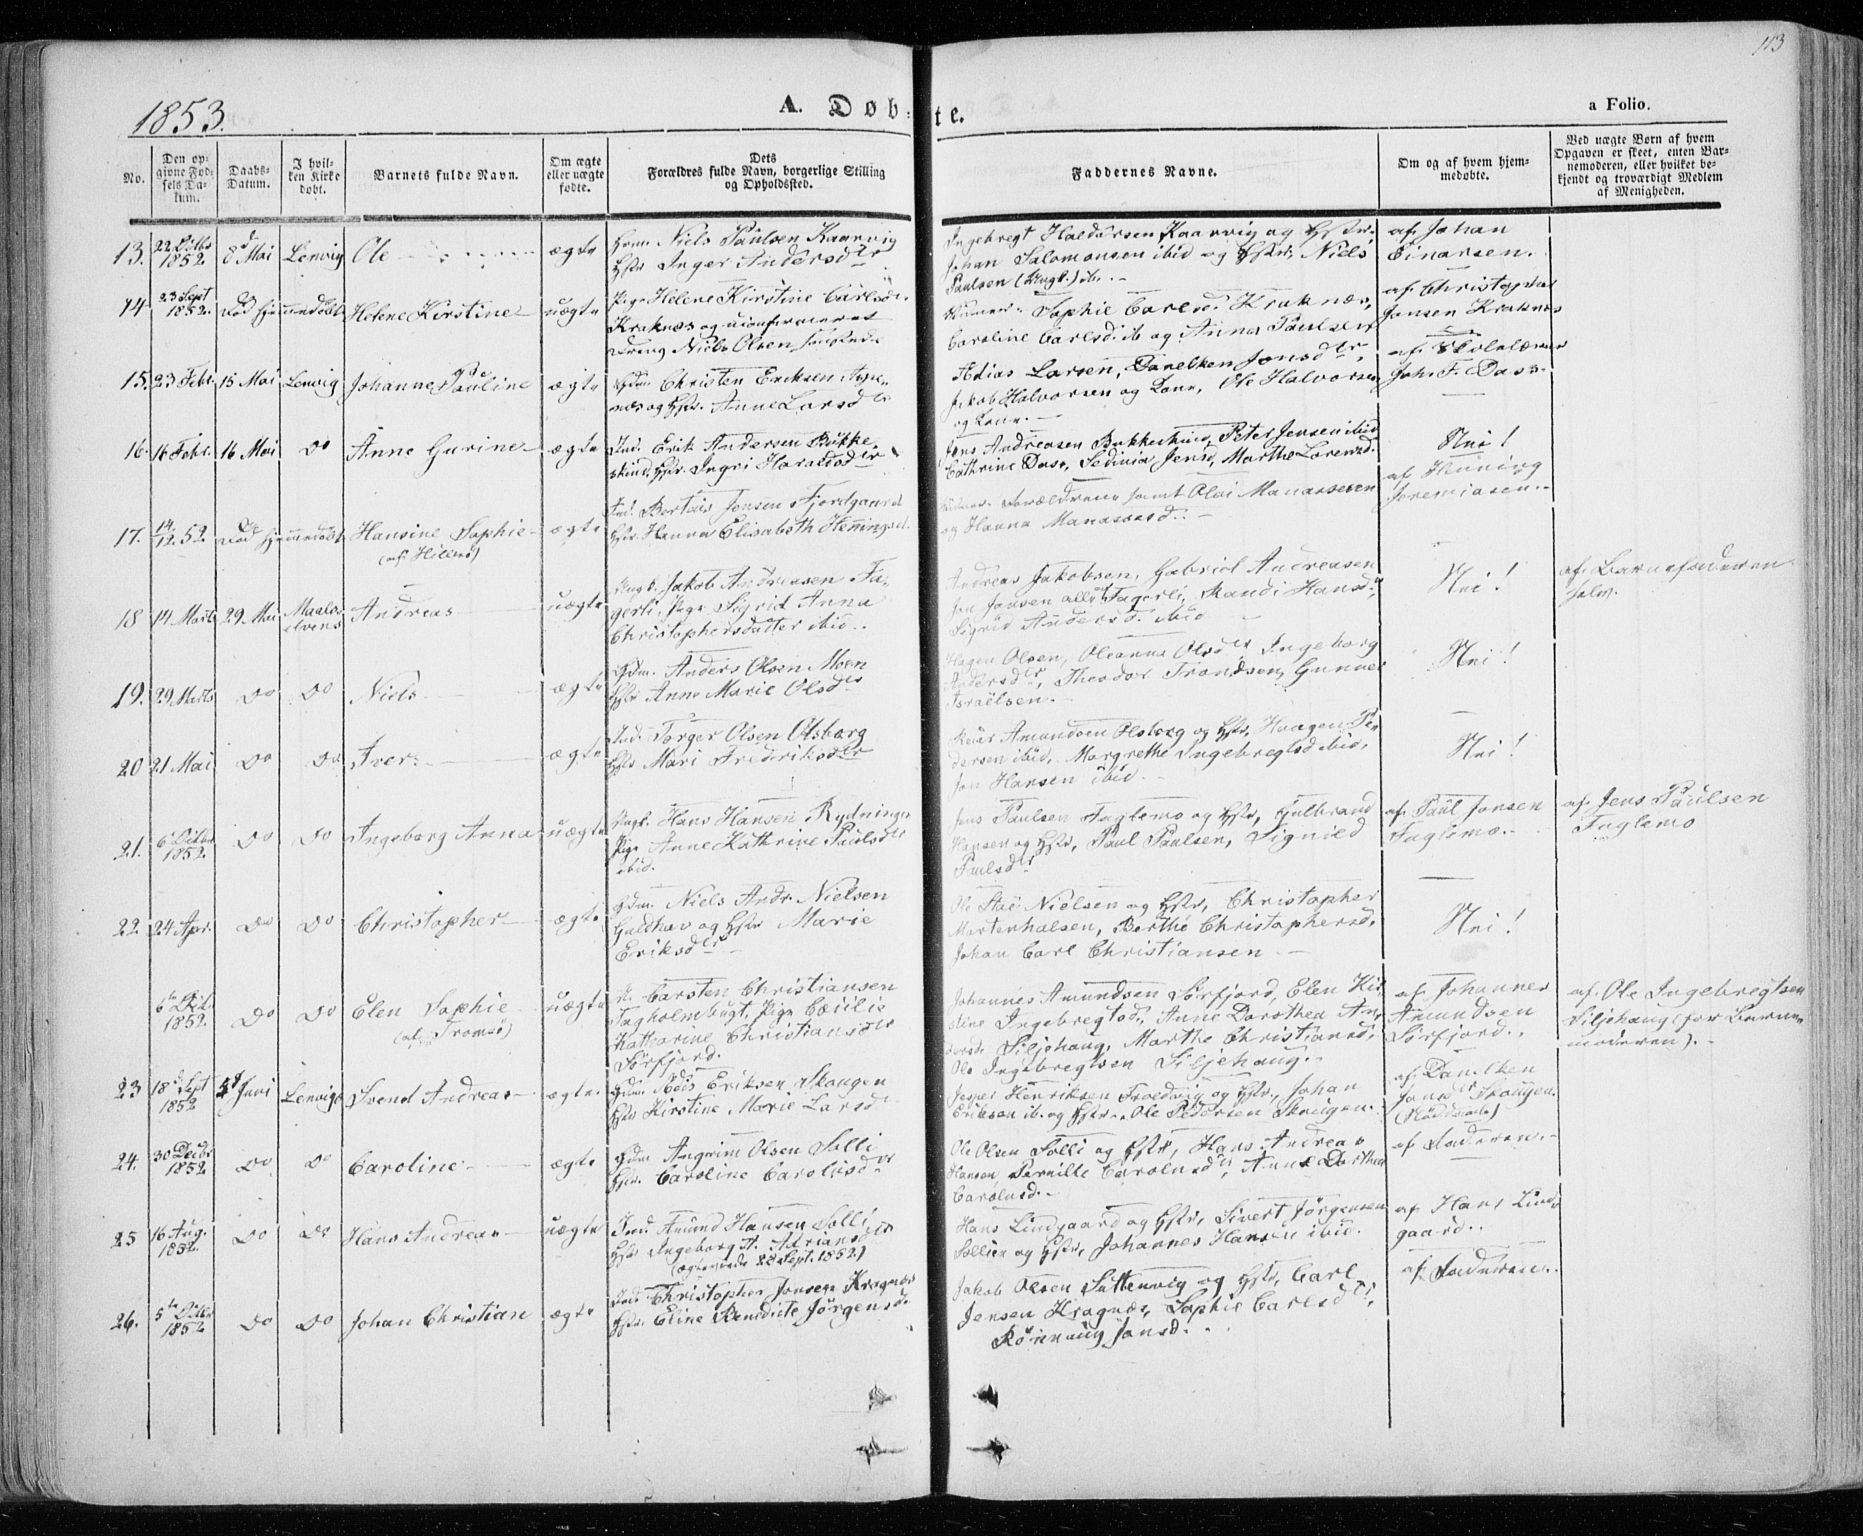 113
1853.
A. Døb-te.
a Folio.
No.
Den op-
givne Fød-
sels Da-
tum.
Daabs-
Datum.
I hvil-
ken Kirke
døbt.
Barnets fulde Navn.
Om ægte
eller uægte
fødte.
Dets
Forældres fulde Navn, borgerlige Stilling
og Opholdssted.
Faddernes Navne.
Om og af hvem hjem-
medøbte.
Ved uægte Børn af hvem
Opgaven er skeet, enten Bar-
nemoderen, eller hvilket be-
kjendt og troværdigt Medlem
af Menigheden.
13. 22 Octbr 1852 8d Mai Lenvig Ole ægte
Niels Paulsen Kaarvig
Hstr Inger Andersdtr
Ingebregt Haldorsen Kaarvig og Hstr.
Johan Salomonsen ibid og Hstr, Niels
Paulsen (Ungk.) ib.
af Johan
Einarsen.
14. 23 Sept 1852. Død hjemmedøbt Helene Kirstine uægte
Pige Helene Kirstine Carlsd.
Kraknæs og uconfirmeret
Dreng Niels Olsen
Sophie Carlsd. Kraknæs,
Caroline Carlsd. ib og Anna Paulsen
af Christopher
Jensen Kraknæs
15. 23 Febr. 15 Mai Lenvig Johanne Pauline ægte
Gdm. Christen Eriksen
næs og Hstr. Anne Larsdtr
Adias Larsen, Danelken Jonsdtr,
Jakob Halvorsen og Kone, Ole Halvorsen
og Kone.
af Skolelærer
Joh. F. Dass.
16. 16 Febr. 16 Mai Do Anne Gurine ægte
Ind. Erik Andersen Bukke
skind, Hstr. Ingri Haraldsdtr
Jens Andreasen Bukkeskind, Peter Jensen ibid
Cathrine Dass, Sedinia Jensd, Marthe Lorentsd.
Nei!
17. 14/12.52. Død hjemmedøbt Hansine Sophie ægte
(af Hillesø)
Ind. Bertius Jensen Fjordgaard
Hstr. Hanna Elisabeth Hemingsd.
Forældrene samt Olai Manassesen
og Hanna Manassesd.
af Henning
Jeremiasen.
18 14 Marts 29 Mai Maals-
elvens Andreas uægte
Ungk. Jakob Andreasen Fa-
gerli, Pige Sigrid Anna
Christophersdatter ibid.
Andreas Jakobsen, Gabriel Andreasen
Jon Jansen alle af Fagerli, Randi Hansd.,
Sigrid Andersd. ibid
Nei!
af Barnefaderen
selv.
19. 29 Marts Do Do Niels ægte
Gdm. Anders Olsen Moen
Hstr Anne Marie Olsdtr
Hagen Olsen, Oleanna Olsdtr Ingeborg
Andersdtr, Theodor Trondsen, Gunner
Israelsen.
Nei!
20 21 Mai Do Do Iver ægte
Ind. Torger Olsen Olsborg
Hstr Mari Fredriksdtr
Amundsen Olsborg og Hstr, Haagen Pe-
dersen ibid, Margrethe Ingebregtsd ibid,
Jon Hansen ibid
Nei!
21. 6 Octbr 1852. Do Do Ingeborg Anna uægte
Ungk. Hans Hansen Rydningen
Pige Anne Kathrine Paulsdtr
ibid.
Jens Paulsen Faglemo og Hstr, Gulbrand
Hansen og Hstr, Paul Paulsen, Signild
Paulsdtr
af Paul Jensen
Faglemo.
af Jens Paulsen
Faglemo
22. 24 Apr. Do Do Christopher ægte
Gdm. Niels Andr. Nielsen
Guldhav og Hstr Marie
Eriksdtr
Ole Nielsen og Hstr, Christopher
Mortenhalsen, Berthe Christophersd,
Johan Carl Christiansen
Nei!
6te 1852. Do Do Elen Sophie uægte
(af Tromsø)
Carsten Christiansen
Fagholmbugt, Pige Cecilie
Katharine Christiansdtr
Sørfjord.
Johannes Amundsen Sørfjord, Elen Kir-
stine Ingebregtsd., Anne Dorothea An-
dersd. Siljehaug, Marthe Christiansd,
Ole Ingebregtsen Siljehaug.
af Johannes
Amundsen
Sørfjord.
af Ole Ingebregtsen
Siljehaug (for Barne-
moderen).
23 18d Sept 1852 5d Juni Lenvigs Svend Andreas ægte
Gdm. Eriksen Skougen
Hstr Kirstine Marie Larsd
Jesper Henriksen Troedvig og Hstr, Johan
Eriksen ib. og Hstr., Ole Pedersen Skougen.
af Danelken
Jonsdtr Skougen.
24. 30 Decbr 1852 Do Do Caroline ægte
Gdm Angrim Olsen Solli
Hstr. Caroline Carolusdtr
Ole Olsen Solli og Hstr, Hans Andreas
Hansen, Pernille Carolusdtr, Anne Dorthea
Carolusd.
af Faderen.
25 16 Aug. 1852. Do Do Hans Andreas uægte
Ind. Amund Hansen Solli
Hstr Ingeborg A. Adriansdtr
(ægteviede 22 Sept. 1852)
Hans Lindgaard og Hstr, Sivert Jørgensen
Sollien og Hstr, Johannes Hansen ibid.
af Hans Lind-
gaard.
26. 5te Octbr 1852 Do Do Johan Christian ægte
Ind. Christopher Jensen Kragnæs
Hstr. Eline Bendicte Jørgensd.
Jakob Olsen Suttenvig og Hstr, Carl
Jensen Kragnæs, Sophie Carlsdtr,
Rønnaug Jonsd.
af Faderen.